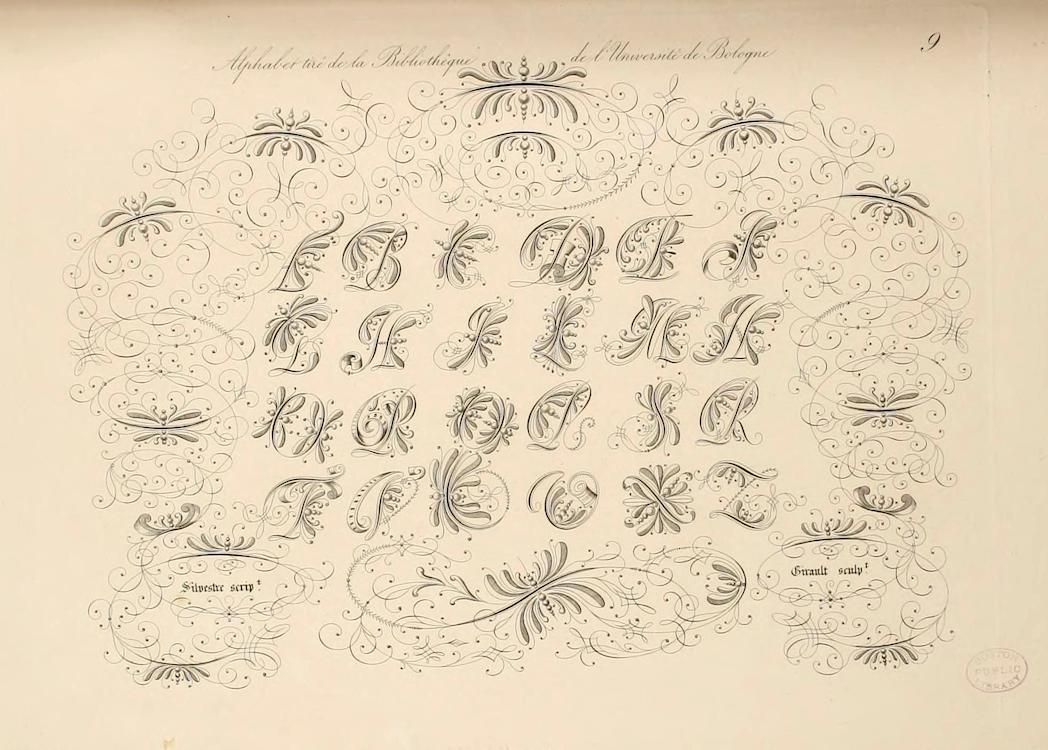 9
Alphabet tiré de la Bibliothèque de l'Université de Bologne
A B C D E F
G H I L M N
O P Q R S
T X Z
Silvestre scrip.t
Girault sculp.t
BOSTON
PUBLIC
LIBRARY